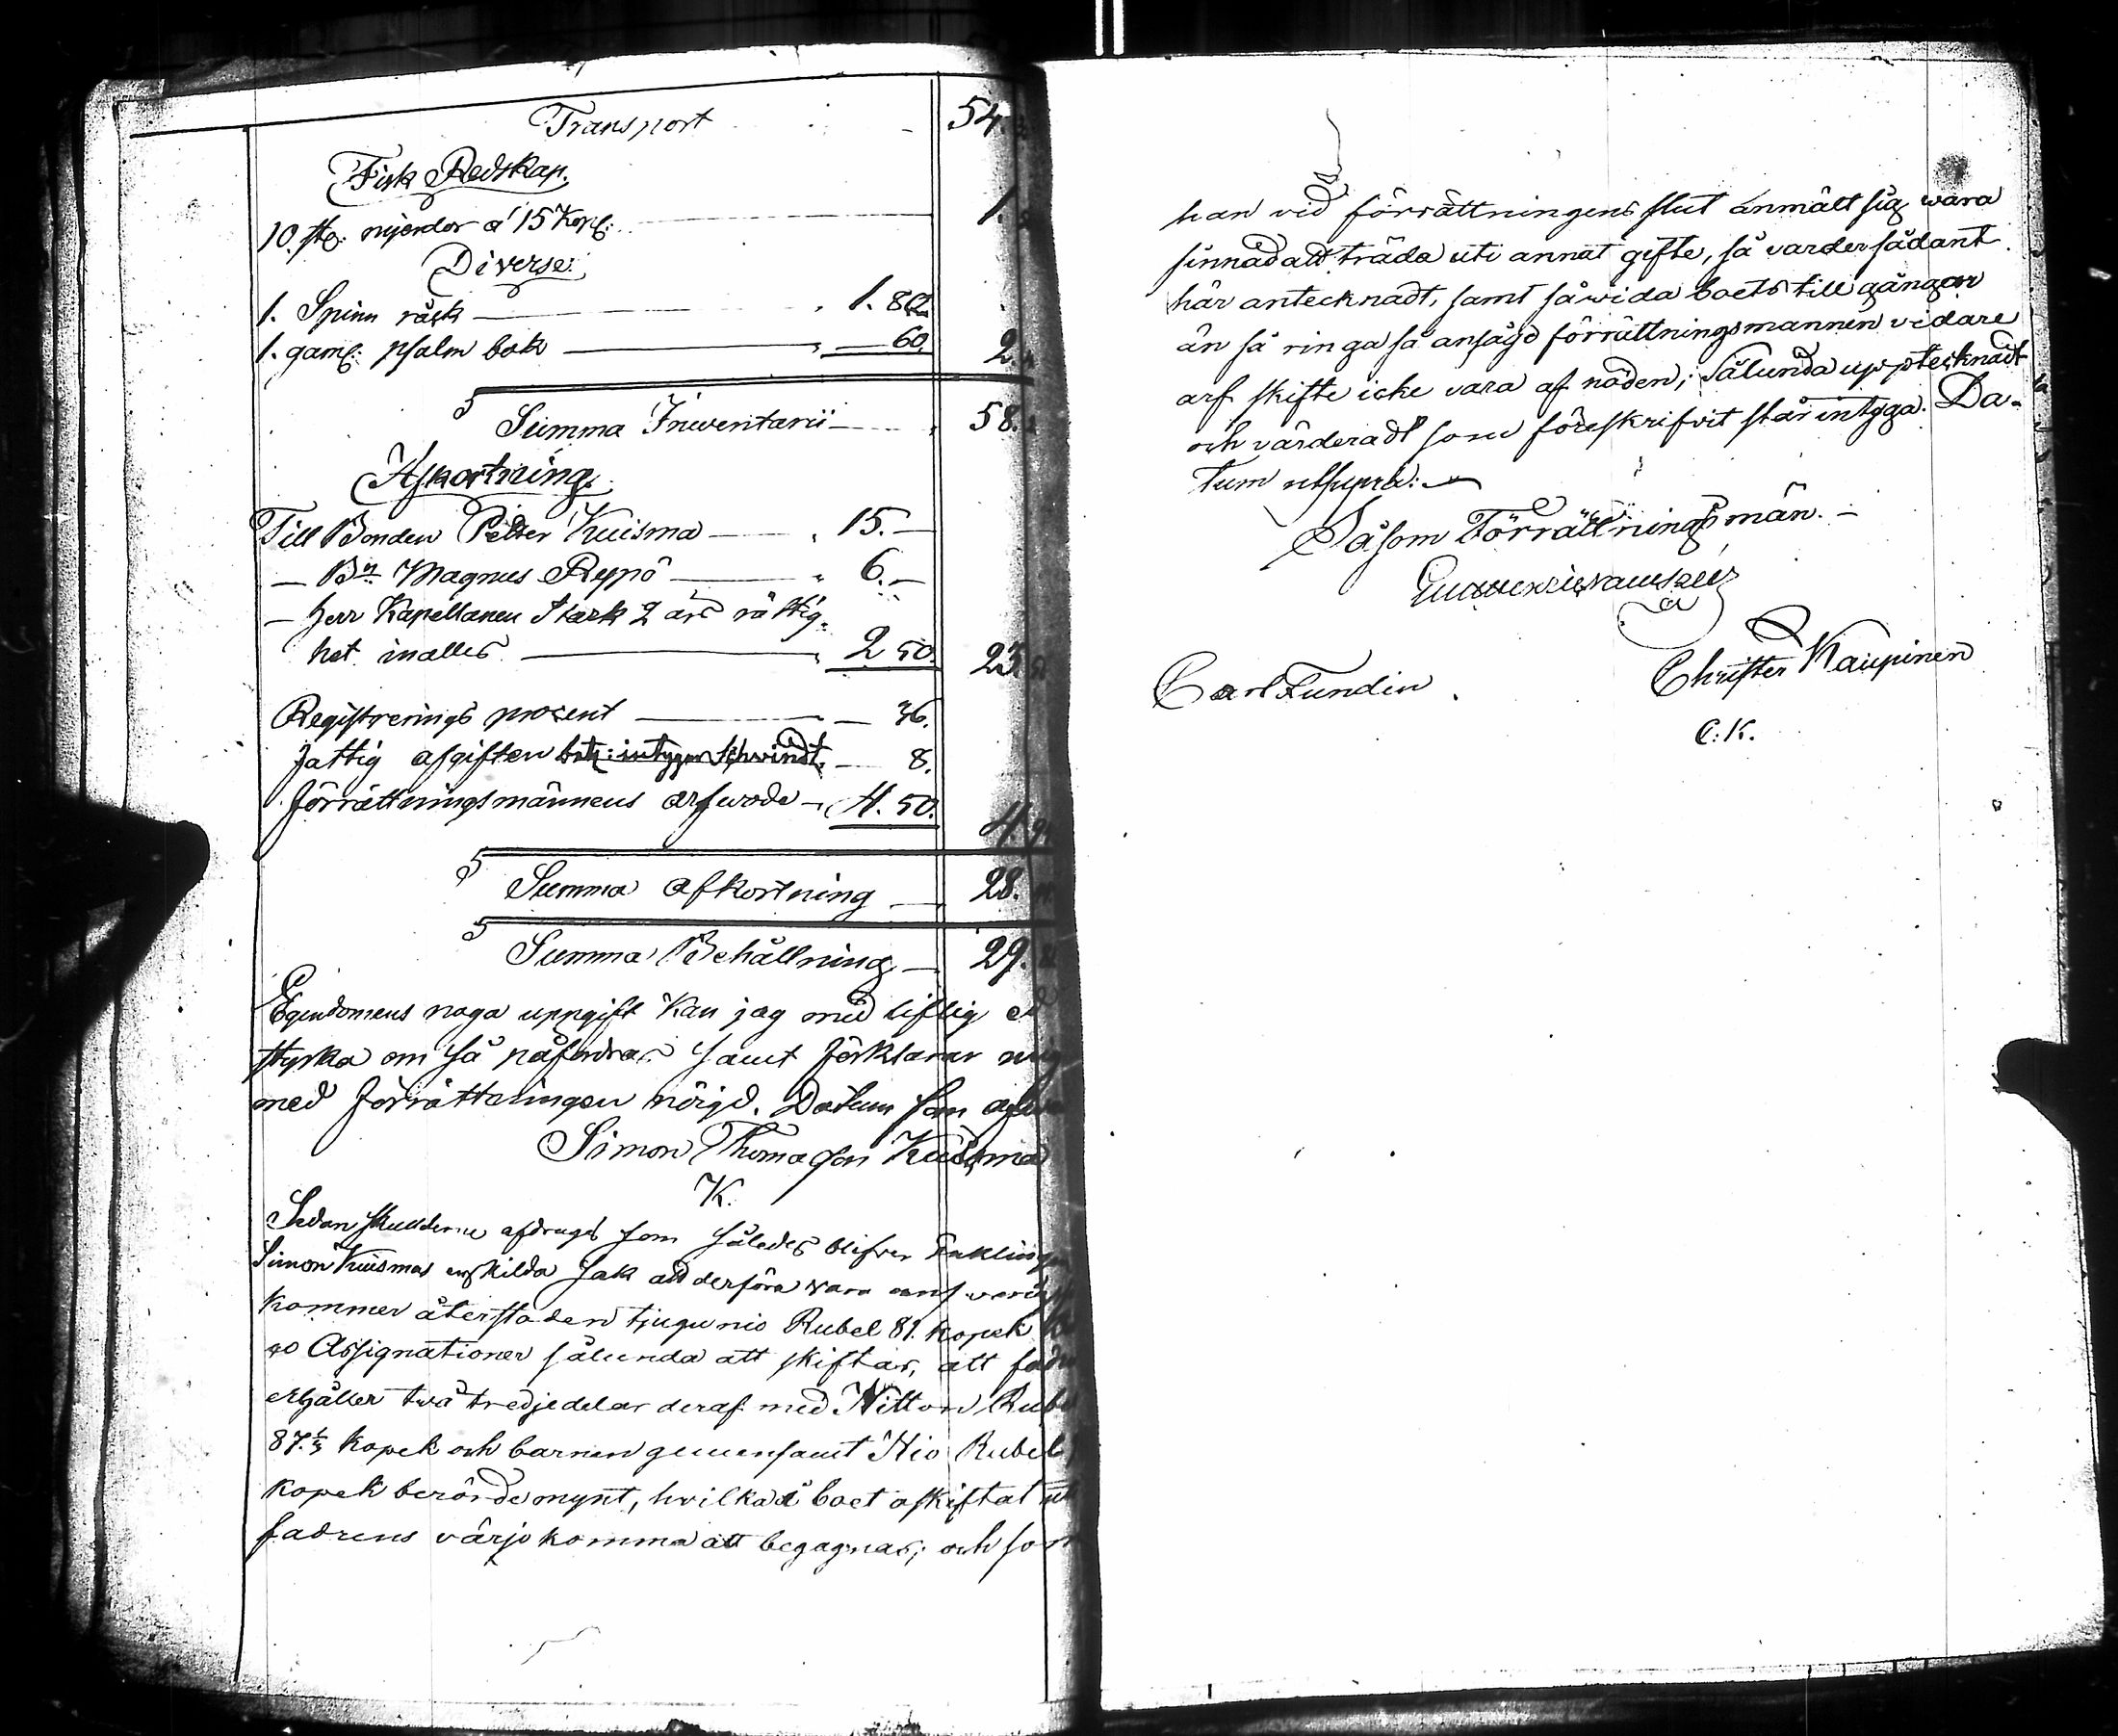 Transport 54.
Fisk Redskap.
10. st: mjerdor a' 15 Kop: 1.
Diverse:
1. Spinn råck 1. 80.
1. gaml: psalm bok 60. 2.
Summa Inventarii 58.
Afkortning.
Till Bonden Petter Kuisma 15.
— Bn Magnus Reppö 6.
— Herr Kapellanen Stark 2 års rättig-
het inalles 2 50. 23.
Registrerings procent 36.
Fattig afgiften bet: intygar Schvindt. 8.
Förrättningsmännens arfwode 4. 50. 4.
Summa afkortning 28.
Summa Behållning 29.
Egendomens noga uppgift kan jag med liflig ed
styrka om så påfordras samt förklarar mig
med förrättningen nöjd. Datum som
Simon Thomasson Kuisma
K.
Sedan skulderne afdragits som således blifver Enklingen
Simon Kuismas enskilda sak att derföre vara
kommer återstoden tjugu nio Rubel 81. kopek
Assignationer sålunda att skiftas, att
erhåller två tredjedelar deraf med Nitton Rubel
87 1/3 kopek och barnen gemensamt Nio Rubel
kopek berörde mynt, hvilka i boet oskiftat
fadrens värjo komma att begagnas; och som
han vid förrättningens slut anmält sig wara
sinnad att träda uti annat gifte, så varder sådant
här antecknadt, samt såwida boets tillgångar
än så ringa så ansågo förrättningsmännen vidare
arf skifte icke vara af nöden; Sålunda uppteknadt
och värderadt som föreskrifvit står intyga. Da-
tum utsupra:
Såsom Förrättningsmän.
Carl Fundin. Christer Kaupinen
C: K.